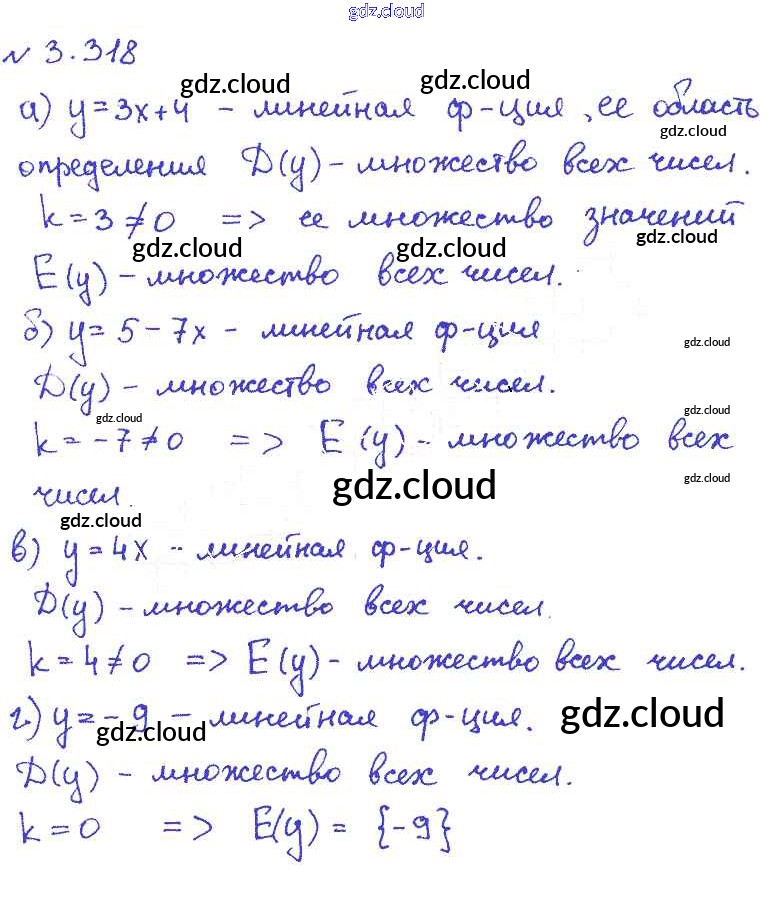 gdz.cloud
№ 3.318
gdz.cloud gdz.cloud
а) y = 3x+4 - линейная ф-ция, ее область
gdz.cloud
определения D(y) - множество всех чисел.
k = 3 ≠ 0 => ее множество значений
gdz.cloud gdz.cloud gdz.cloud
E(y) - множество всех чисел.
б) y = 5 - 7x - линейная ф-ция
gdz.cloud
D(y) - множество всех чисел.
gdz.cloud gdz.cloud
k = -7 ≠ 0 => E(y) - множество всех
gdz.cloud gdz.cloud
чисел.
gdz.cloud
в) y = 4x - линейная ф-ция.
D(y) - множество всех чисел.
k = 4 ≠ 0 => E(y) - множество всех чисел.
г) y = -9 - линейная ф-ция. gdz.cloud
gdz.cloud
D(y) - множество всех чисел.
k = 0 => E(y) = {-9}